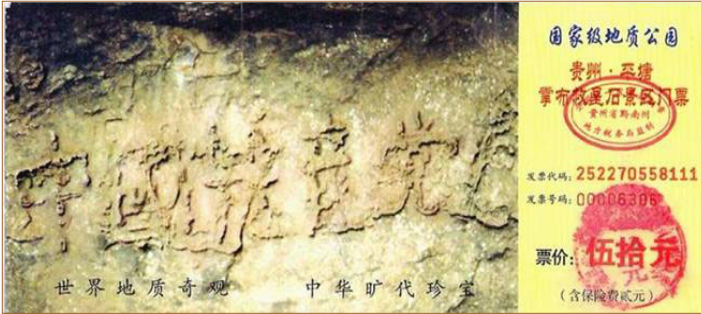 中國共産党
世界地质奇观 中华旷代珍宝
国家级地质公园
贵州·平塘
掌布救星石景区门票
贵州省黔南州
地方税务局监制
发票代码：252270558111
发票号码：00006306
票价：伍拾元
（含保险费贰元）